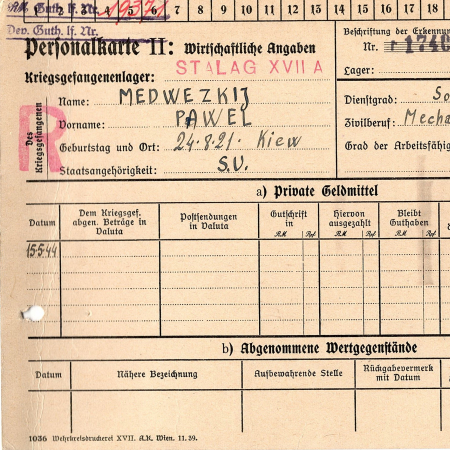 R.M. Guth. lf. Nr. 19371
1 2 3 4 5 6 7 8 9 10 11 12 13 14 15 16 17 18
Dev. Guth. lf. Nr.
Personalkarte II: Wirtschaftliche Angaben
Beschriftung der Erkennun
Nr. 1740
Kriegsgefangenenlager: STALAG XVII A
Lager:
Des Kriegsgefangenen
R
Name: MEDWEZKIJ
Dienstgrad: So
Vorname: PAWEL
Zivilberuf: Mecha
Geburtstag und Ort: 24.8.21. Kiew
Grad der Arbeitsfähig
Staatsangehörigkeit: S.U.
a) Private Geldmittel
Datum
Dem Kriegsgef. abgen. Beträge in Valuta
Postsendungen in Valuta
Gutschrift in
RM Rpf.
Hiervon ausgezahlt
RM Rpf.
Bleibt Guthaben
RM Rpf.
15.5.44
b) Abgenommene Wertgegenstände
Datum
Nähere Bezeichnung
Aufbewahrende Stelle
Rückgabevermerk mit Datum
1036 Wehrkreisdruckerei XVII. A.R. Wien. 11. 39.